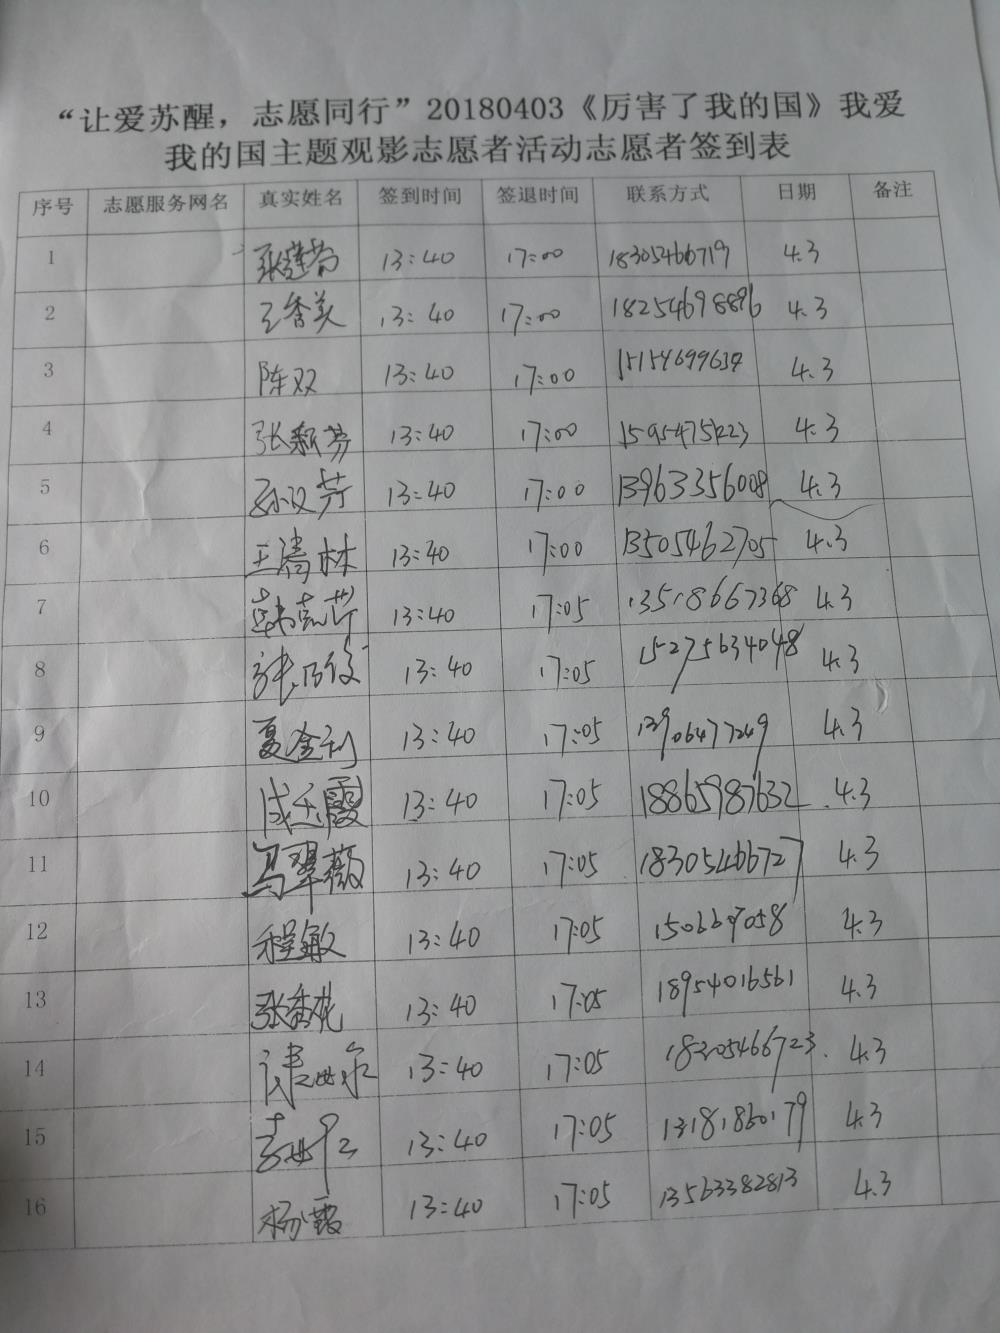 “让爱苏醒，志愿同行”20180403《厉害了我的国》我爱
我的国主题观影志愿者活动志愿者签到表
序号 志愿服务网名 真实姓名 签到时间 签退时间 联系方式 日期 备注
1 张莲芬 13:40 17:00 18305466719 4.3
2 王秀美 13:40 17:00 18254698896 4.3
3 陈双 13:40 17:00 15154699634 4.3
4 张新芳 13:40 17:00 15954751223 4.3
5 孙汉芹 13:40 17:00 13963356008 4.3
6 王涛林 13:40 17:00 13505462705 4.3
7 韩克芹 13:40 17:05 13518667368 4.3
8 13:40 17:05 15275634048 4.3
9 夏金利 13:40 17:05 13906477249 4.3
10 成玉霞 13:40 17:05 18865987632 4.3
11 马翠薇 13:40 17:05 18305466727 4.3
12 程敏 13:40 17:05 4.3
13 张秀花 13:40 17:05 18954016561 4.3
14 13:40 17:05 18305466723 4.3
15 13:40 17:05 13181860179 4.3
16 杨霞 13:40 17:05 13563382813 4.3